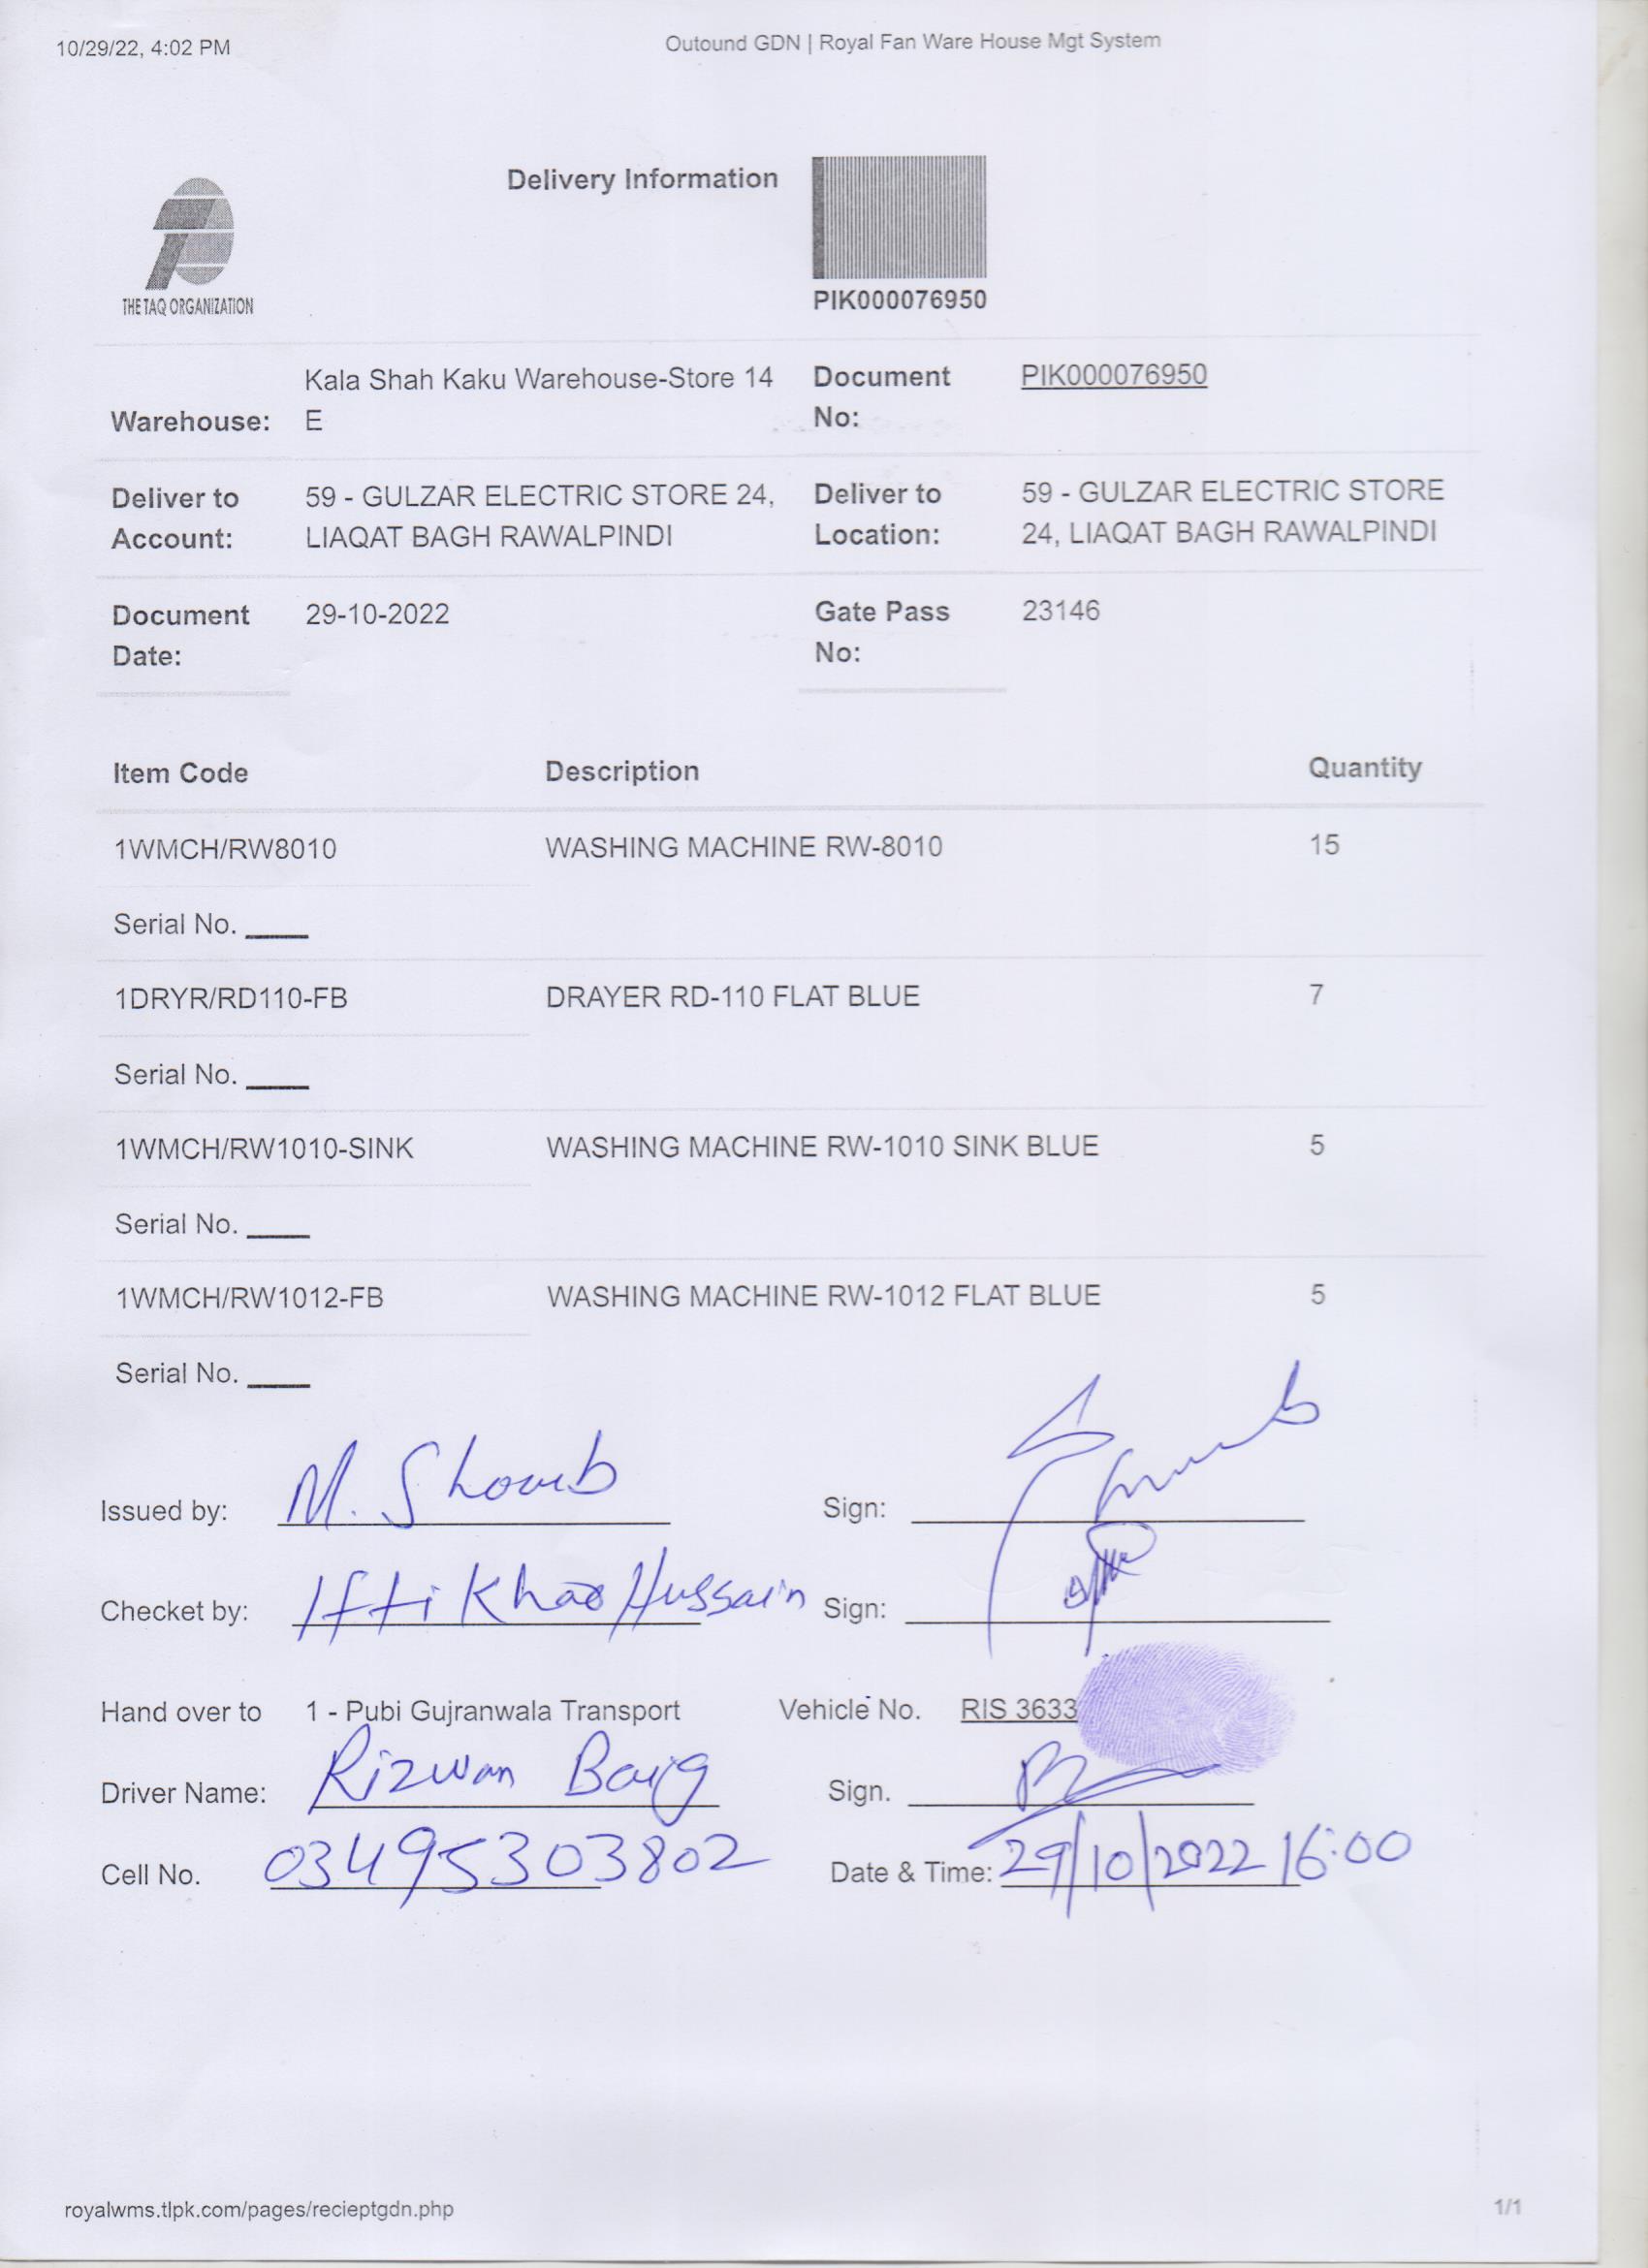 10/29/22, 4:02 PM
Outound GDN | Royal Fan Ware House Mgt System
THE TAQ ORGANIZATION
Delivery Information
PIK000076950
Warehouse: Kala Shah Kaku Warehouse-Store 14 E
Document No: PIK000076950
Deliver to Account: 59 - GULZAR ELECTRIC STORE 24, LIAQAT BAGH RAWALPINDI
Deliver to Location: 59 - GULZAR ELECTRIC STORE 24, LIAQAT BAGH RAWALPINDI
Document Date: 29-10-2022
Gate Pass No: 23146
Item Code Description Quantity
1WMCH/RW8010 WASHING MACHINE RW-8010 15
Serial No. ____
1DRYR/RD110-FB DRAYER RD-110 FLAT BLUE 7
Serial No. ____
1WMCH/RW1010-SINK WASHING MACHINE RW-1010 SINK BLUE 5
Serial No. ____
1WMCH/RW1012-FB WASHING MACHINE RW-1012 FLAT BLUE 5
Serial No. ____
Issued by: M. Shoaib Sign:
Checket by: Iftikhar Hussain Sign:
Hand over to 1 - Pubi Gujranwala Transport Vehicle No. RIS 3633
Driver Name: Rizwan Baig Sign.
Cell No. 03495303802 Date & Time: 29/10/2022 16:00
royalwms.tlpk.com/pages/recieptgdn.php
1/1